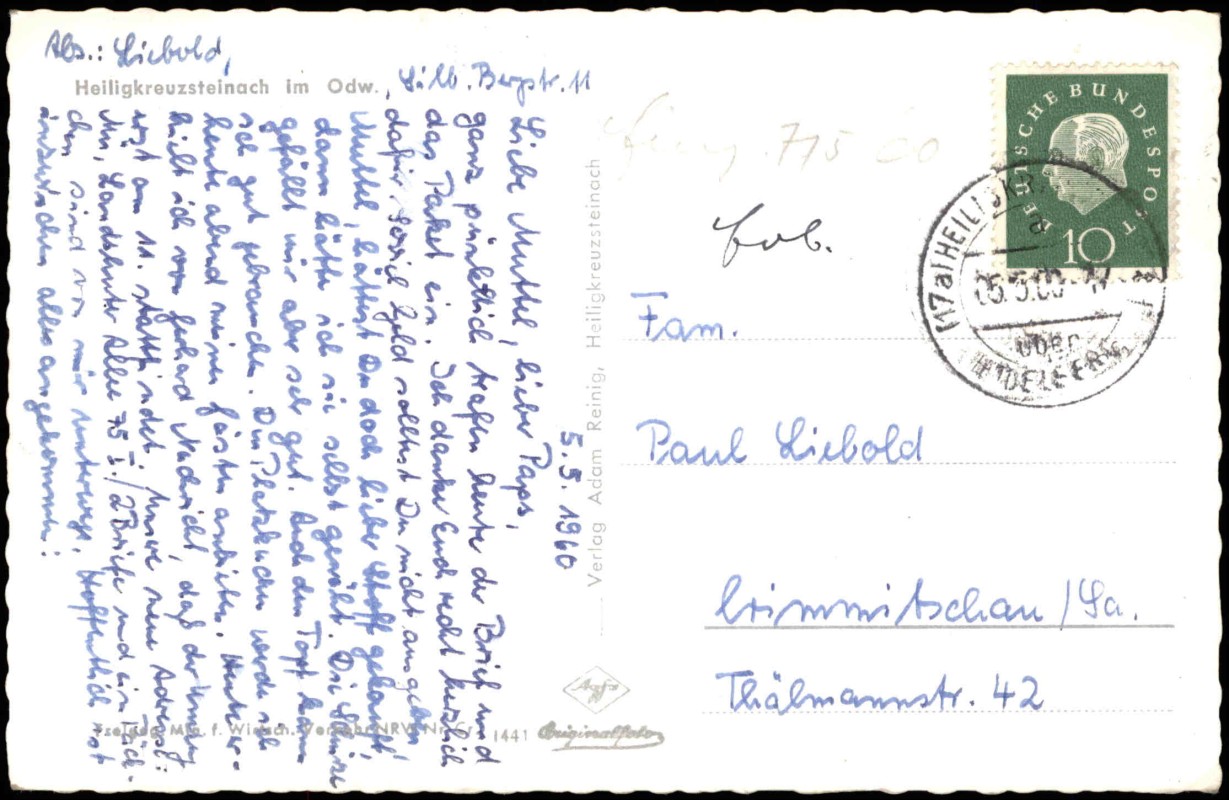 Abs.: Liebold,
Heiligkreuzsteinach im Odw., Silb. Bergstr. 11
5.5.1960
Liebe Muttel, lieber Paps,
ganz pünktlich trafen heute der Brief und
das Paket ein. Ich danke Euch recht herzlich
dafür. Soviel Geld sollst Du nicht ausgeben
Muttel, hättest Du doch lieber Stoff gekauft,
dann hätte ich sie selbst genäht. Die Schürze
gefällt mir aber sehr gut. Auch den Topf kann
ich gut gebrauchen. Den Platzkuchen werde ich
heute abend meinen Gästen anbieten. Unter-
hielt ich von Gerhard Nachricht, daß der Umzug
erst am 11. stattfindet. Unsere neue Adresse:
Mü, Landshuter Allee 75 I./2 Briefe und ein Päck-
chen sind von mir unterwegs. Hoffentlich ist
inzwischen alles angekommen!
Verlag Adam Reinig, Heiligkreuzsteinach
Freigeg. Min. f. Wirtsch. Verkehr NRW Nr.
1441
Agfa
Originalfoto
775
DEUTSCHE BUNDESPOST
10
(17a) HEILIGKR
a
über
HEIDELBERG
Fam.
Paul Liebold
Crimmitschau/Sa.
Thälmannstr. 42